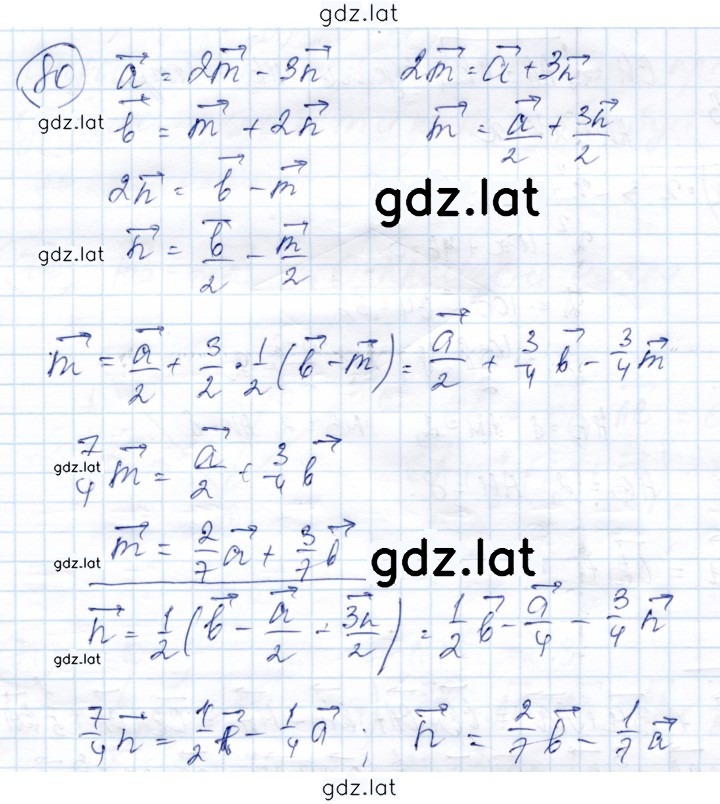 gdz.lat
80 \vec{a} = 2\vec{m} - 3\vec{n}    2\vec{m} = \vec{a} + 3\vec{n}
gdz.lat \vec{b} = \vec{m} + 2\vec{n}    \vec{m} = \frac{\vec{a}}{2} + \frac{3\vec{n}}{2}
2\vec{n} = \vec{b} - \vec{m}    gdz.lat
gdz.lat \vec{n} = \frac{\vec{b}}{2} - \frac{\vec{m}}{2}
\vec{m} = \frac{\vec{a}}{2} + \frac{3}{2} \cdot \frac{1}{2} (\vec{b} - \vec{m}) = \frac{\vec{a}}{2} + \frac{3}{4}\vec{b} - \frac{3}{4}\vec{m}
gdz.lat \frac{7}{4}\vec{m} = \frac{\vec{a}}{2} + \frac{3}{4}\vec{b}
gdz.lat \vec{m} = \frac{2}{7}\vec{a} + \frac{3}{7}\vec{b}    gdz.lat
\vec{n} = \frac{1}{2} (\vec{b} - \frac{\vec{a}}{2} - \frac{3\vec{n}}{2}) = \frac{1}{2}\vec{b} - \frac{\vec{a}}{4} - \frac{3}{4}\vec{n}
gdz.lat
\frac{7}{4}\vec{n} = \frac{1}{2}\vec{b} - \frac{1}{4}\vec{a} ; \vec{n} = \frac{2}{7}\vec{b} - \frac{1}{7}\vec{a}
gdz.lat